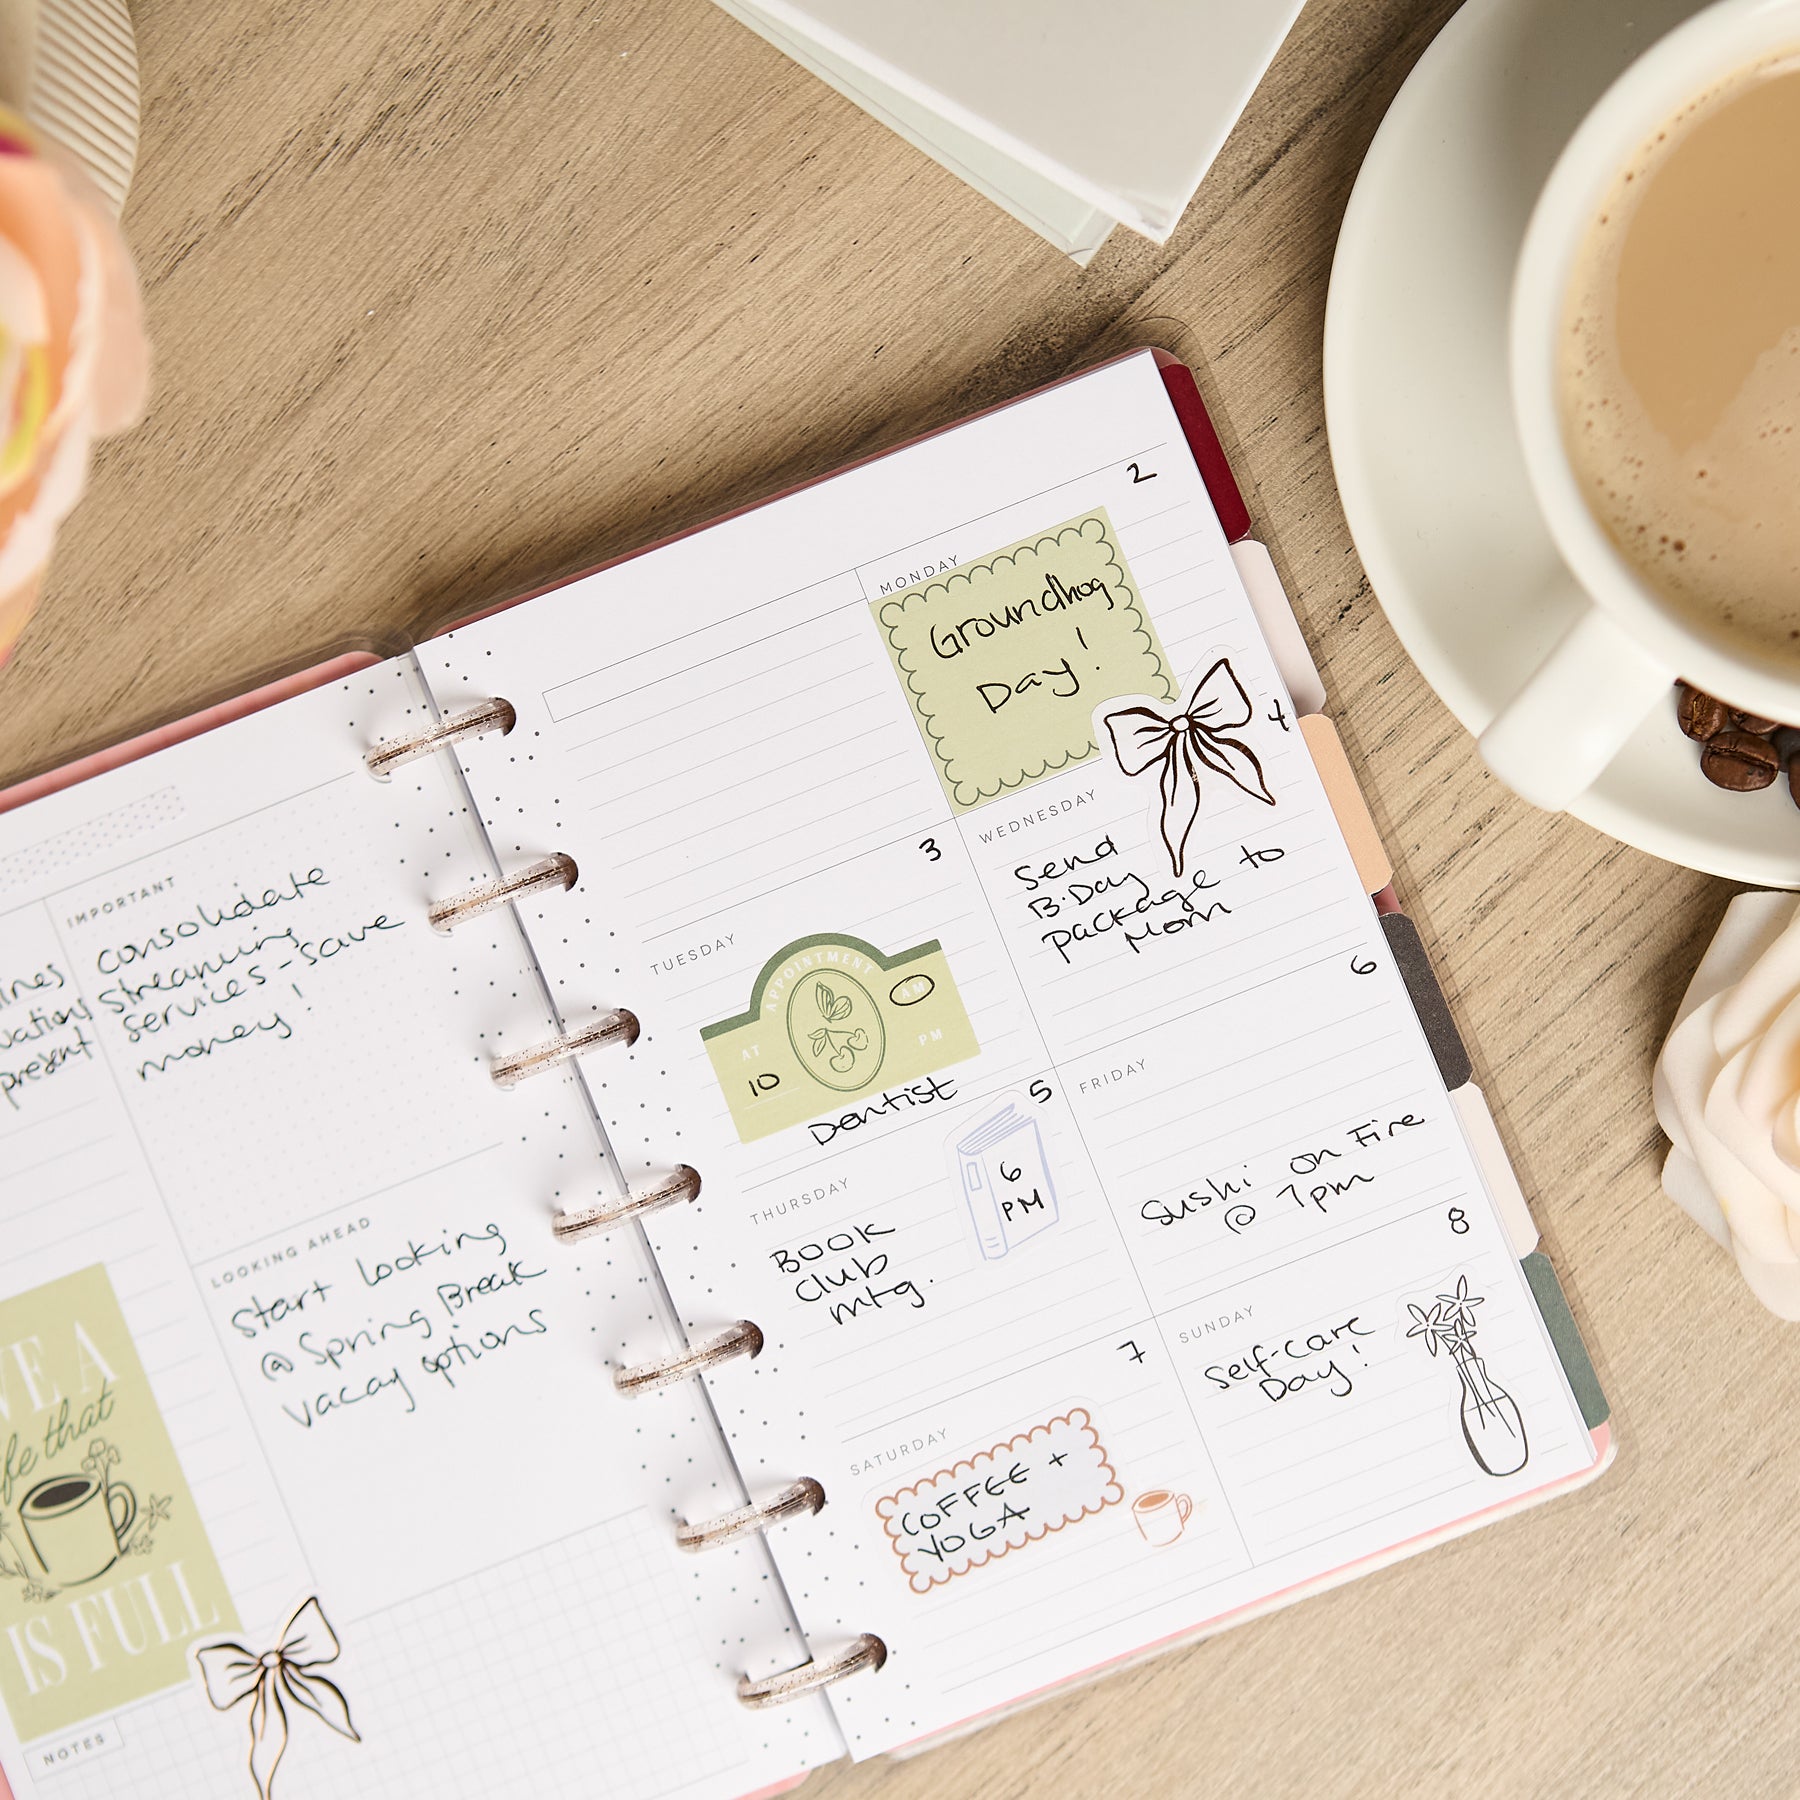 IMPORTANT
consolidate
streaming
services - save
money!
present
LOOKING AHEAD
Start looking
@ Spring Break
vacay options
IS FULL
NOTES
MONDAY
2
Groundhog
Day!
TUESDAY
3
APPOINTMENT
AT
10
AM
PM
Dentist
WEDNESDAY
4
Send
B.Day
package to
Mom
THURSDAY
5
6
PM
Book
Club
mtg.
FRIDAY
6
Sushi on Fire
@ 7pm
SATURDAY
7
COFFEE +
YOGA
SUNDAY
8
Self-care
Day!